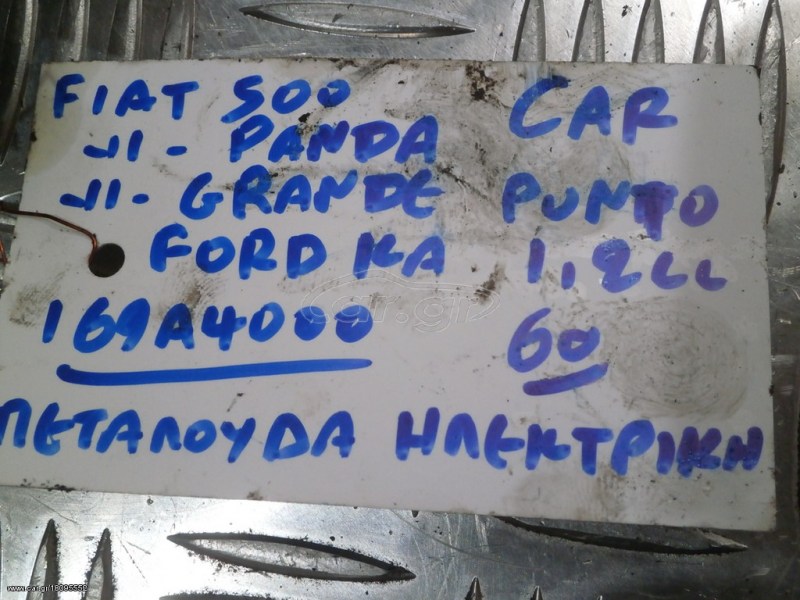 FIAT 500 CAR
-11- PANDA
-11- GRANDE PUNTO
FORD KA 1,2cc
169A4000 60
ΠΕΤΑΛΟΥΔΑ ΗΛΕΚΤΡΙΚΗ
car.gr